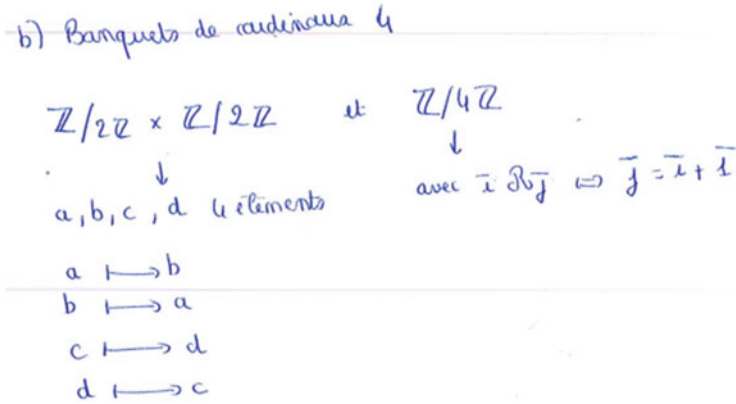 b) Banquets de cardinaux 4
Z/2Z × Z/2Z et Z/4Z
↓ ↓
a, b, c, d 4 éléments avec i̅ R j̅ ⇔ j̅ = i̅ + 1̅
a ⟼ b
b ⟼ a
c ⟼ d
d ⟼ c